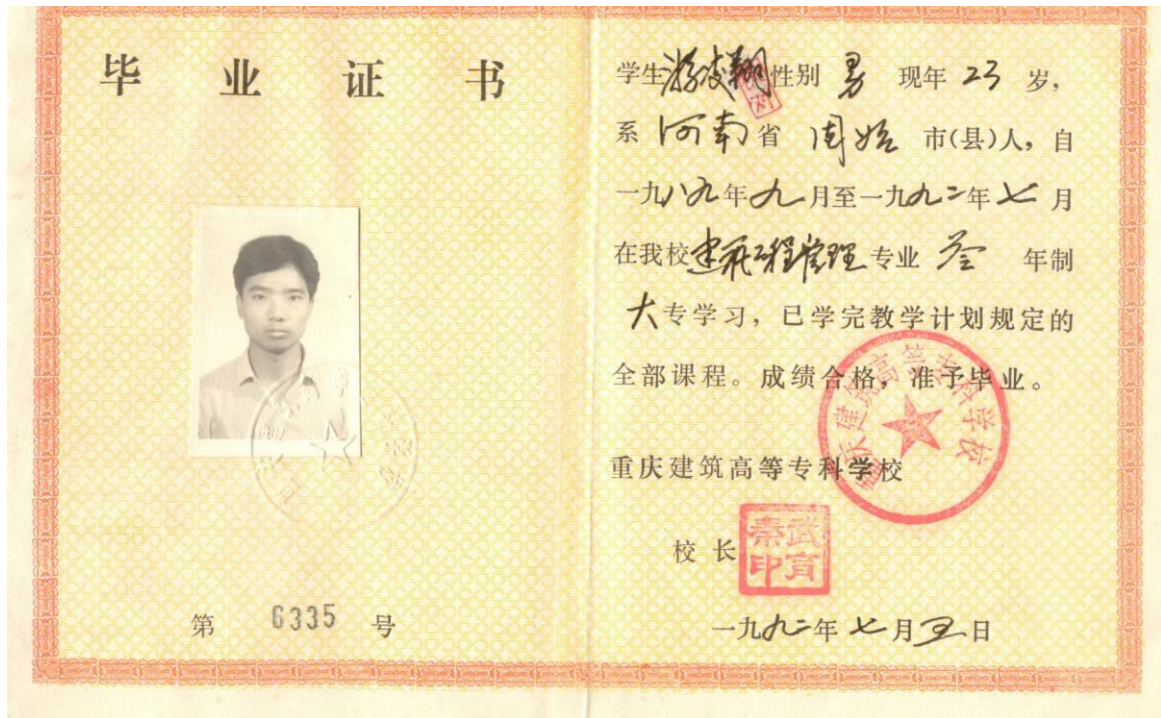 毕业证书
第 6335 号
学生游凌翔性别 男 现年 23 岁,
系 河南省 固始 市(县)人, 自
一九八九年九月至一九九二年七月
在我校建筑工程管理专业 叁 年制
大专学习, 已学完教学计划规定的
全部课程。成绩合格, 准予毕业。
重庆建筑高等专科学校
重庆建筑高等专科学校
校 长
武育秦印
一九九二年七月五日